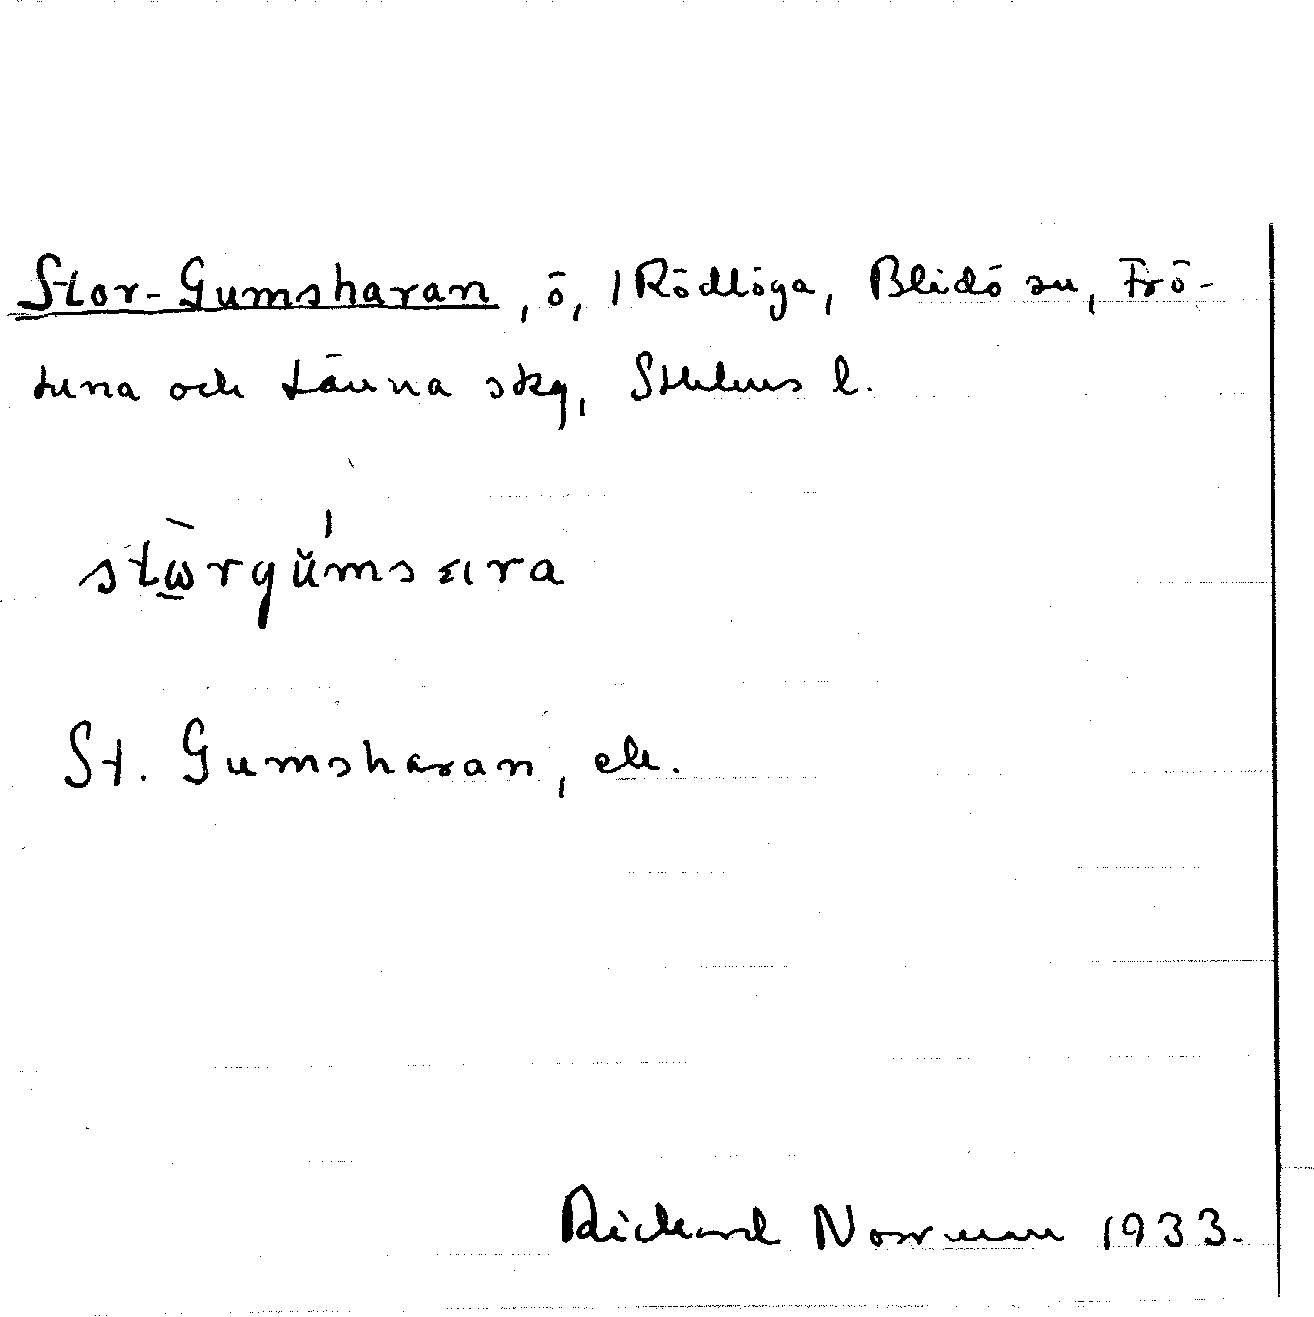 Stor-Gumsharan, ö, i Rödlöga, Blidö sn, Frö-
tuna och Länna skg, Sthlms l.
stὼ̲rgŭ́msara
St. Gumsharan, ek.
Rickard Norrman 1933.